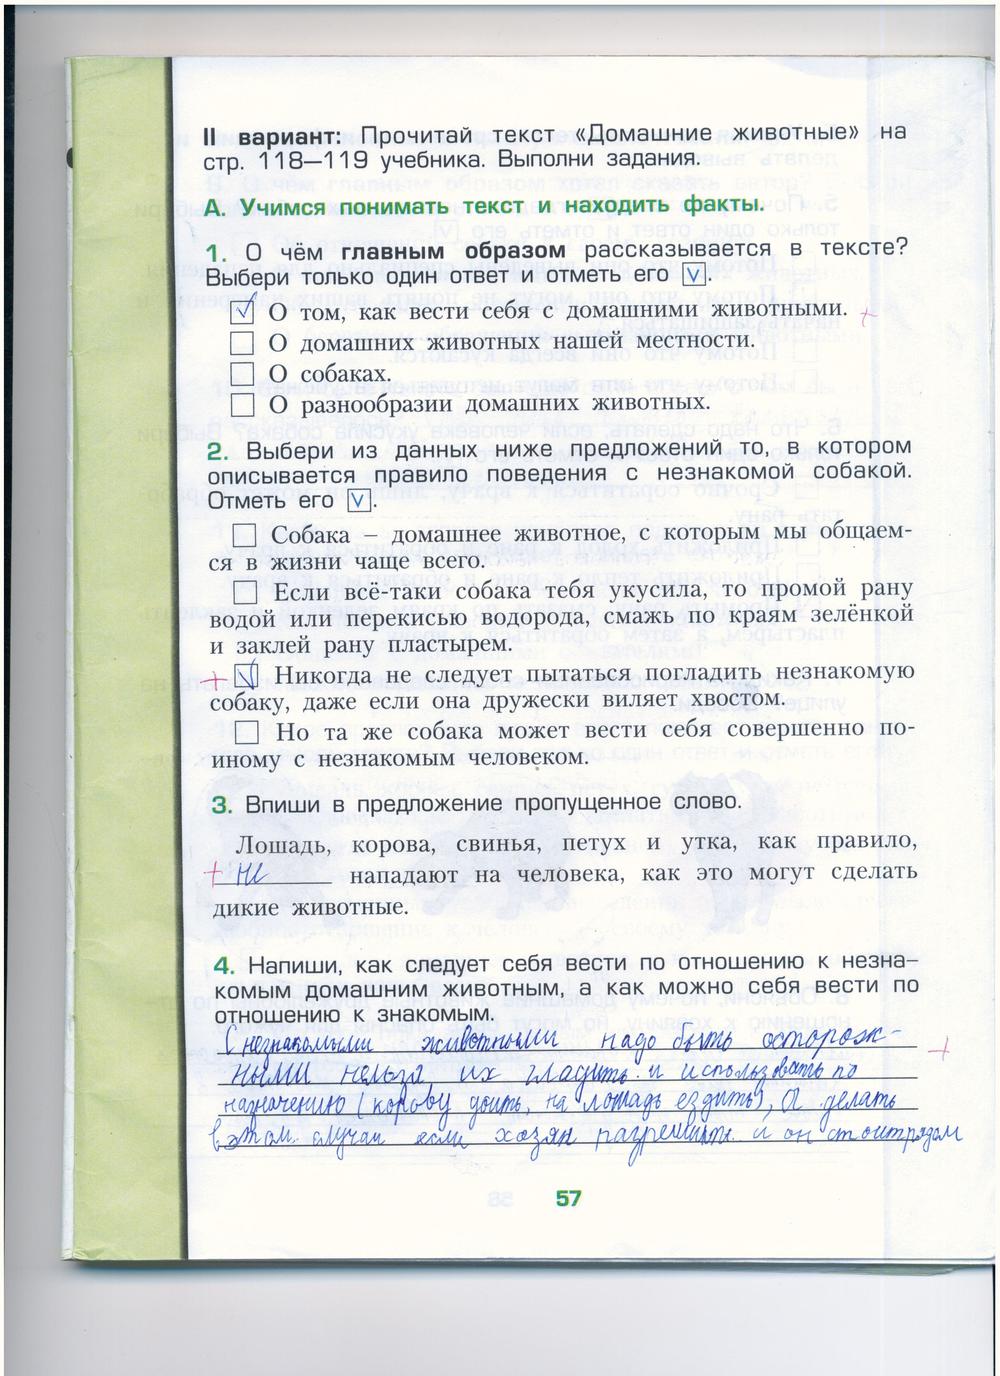 II вариант: Прочитай текст «Домашние животные» на
стр. 118—119 учебника. Выполни задания.
А. Учимся понимать текст и находить факты.
1. О чём главным образом рассказывается в тексте?
Выбери только один ответ и отметь его v.
О том, как вести себя с домашними животными. +
О домашних животных нашей местности.
О собаках.
О разнообразии домашних животных.
2. Выбери из данных ниже предложений то, в котором
описывается правило поведения с незнакомой собакой.
Отметь его v.
Собака – домашнее животное, с которым мы общаем-
ся в жизни чаще всего.
Если всё-таки собака тебя укусила, то промой рану
водой или перекисью водорода, смажь по краям зелёнкой
и заклей рану пластырем.
+ Никогда не следует пытаться погладить незнакомую
собаку, даже если она дружески виляет хвостом.
Но та же собака может вести себя совершенно по-
иному с незнакомым человеком.
3. Впиши в предложение пропущенное слово.
Лошадь, корова, свинья, петух и утка, как правило,
+ не нападают на человека, как это могут сделать
дикие животные.
4. Напиши, как следует себя вести по отношению к незна-
комым домашним животным, а как можно себя вести по
отношению к знакомым.
С незнакомыми животными надо быть осторож-
ными нельза их гладить и использовать по +
назначению (корову доить, на лошадь ездить), А делать
в этом случаи если хозяин разрешит и он стоит рядом
57